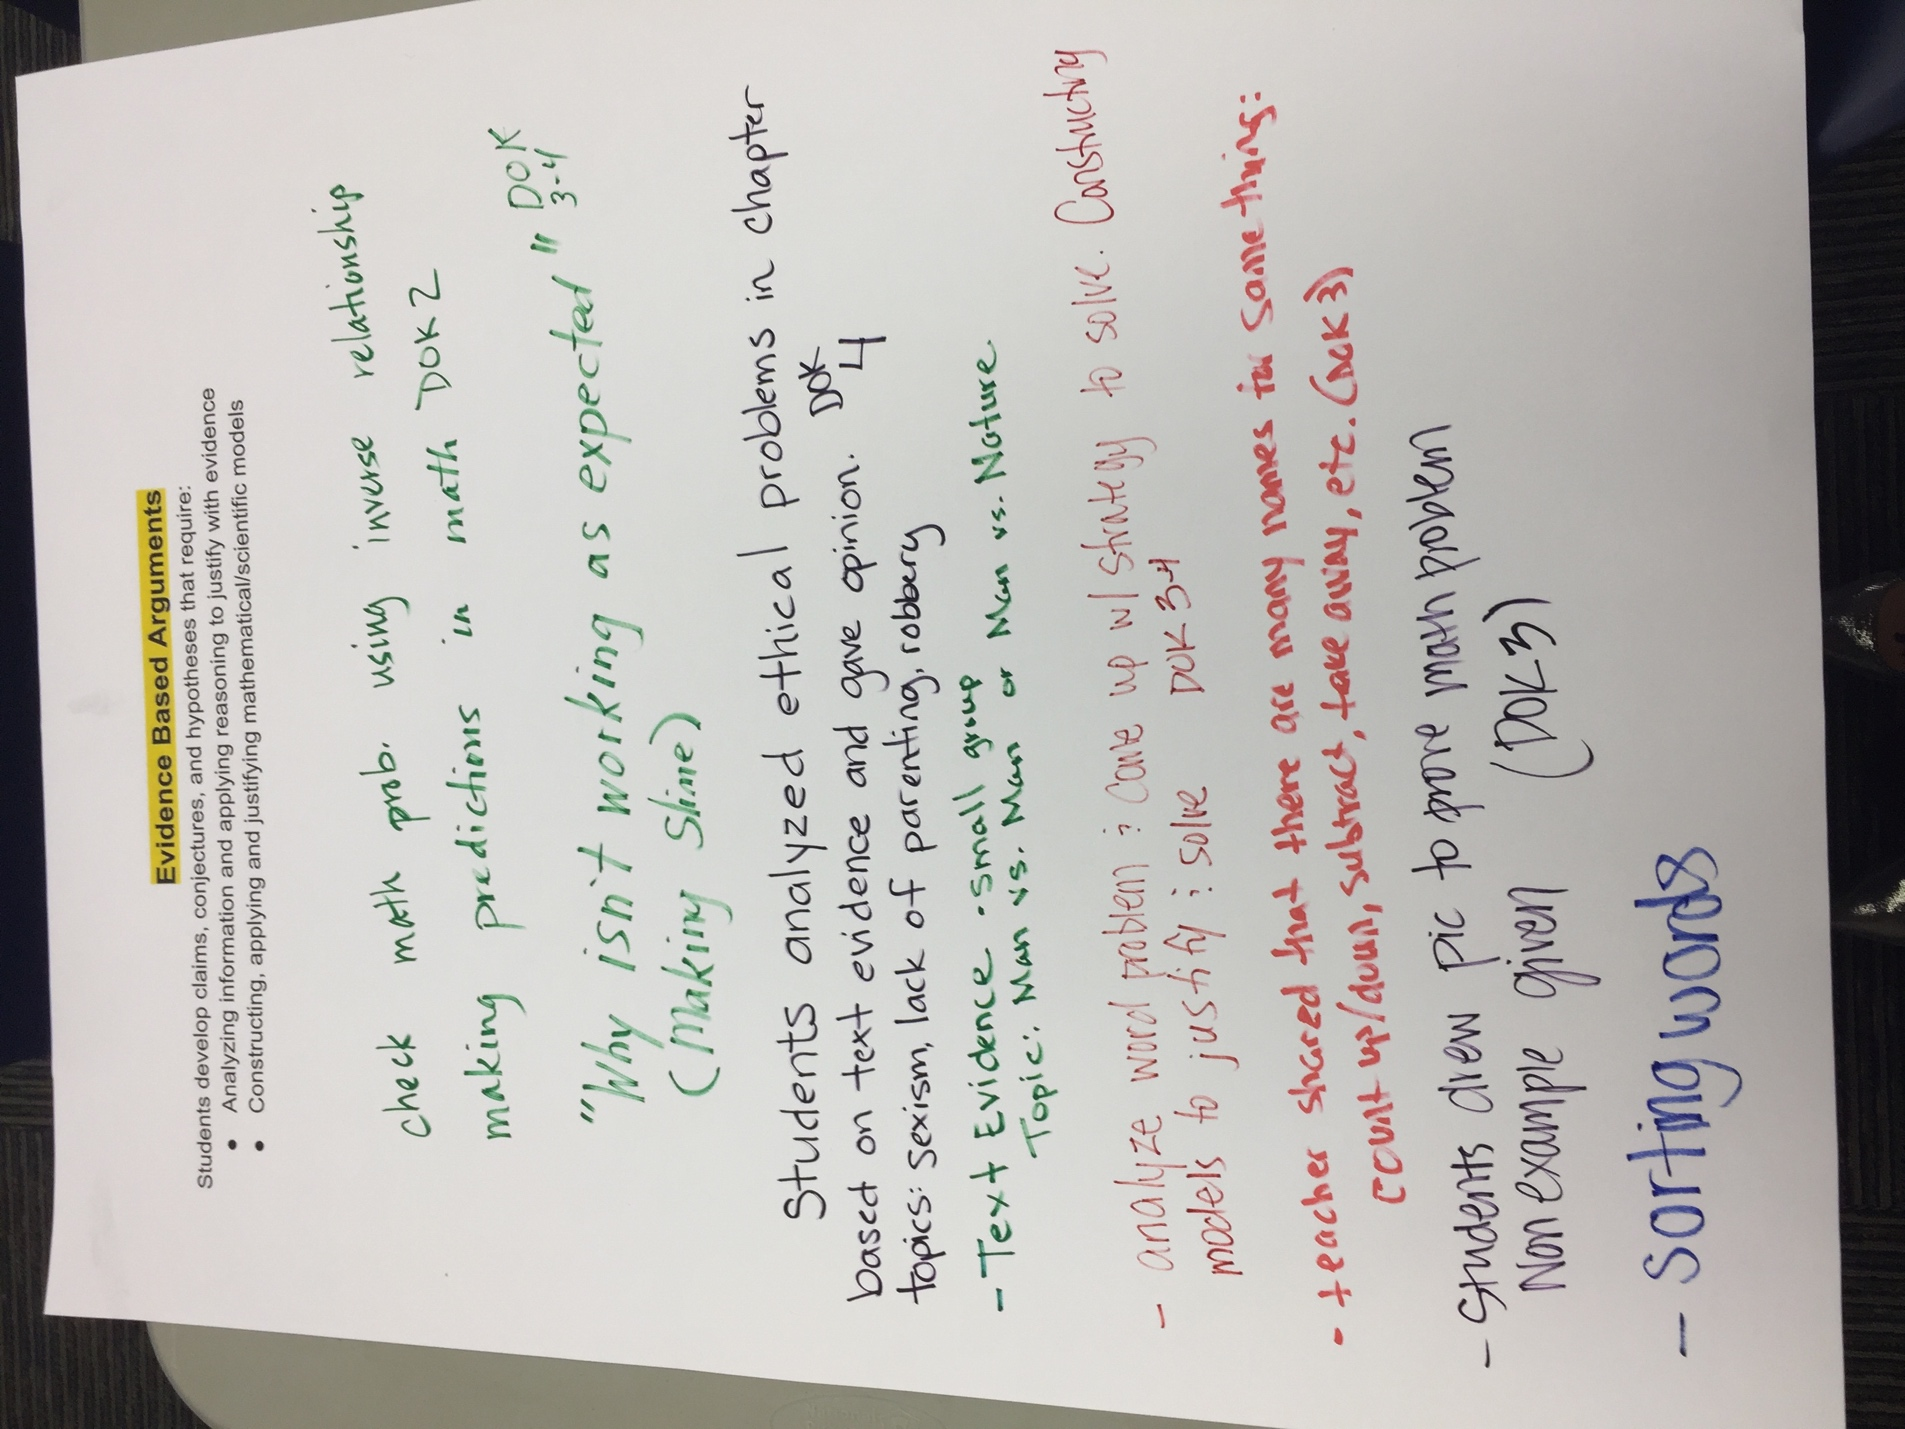 Evidence Based Arguments
Students develop claims, conjectures, and hypotheses that require:
• Analyzing information and applying reasoning to justify with evidence
• Constructing, applying and justifying mathematical/scientific models
check math prob. using inverse relationship
making predictions in math DOK 2
"Why isn't working as expected" DOK 3-4
(Making Slime)
Students analyzed ethical problems in chapter
based on text evidence and gave opinion. DOK 4
topics: sexism, lack of parenting, robbery
- Text Evidence - small group
Topic: Man vs. Man or Man vs. Nature
- analyze word problem ; come up w/ strategy to solve. Constructing
models to justify ; solve DOK 3-4
- teacher shared that there are many names for same thing:
count up/down, subtract, take away, etc. (DOK 3)
- Students drew pic to prove math problem
Non example given (DOK 3)
- Sorting words